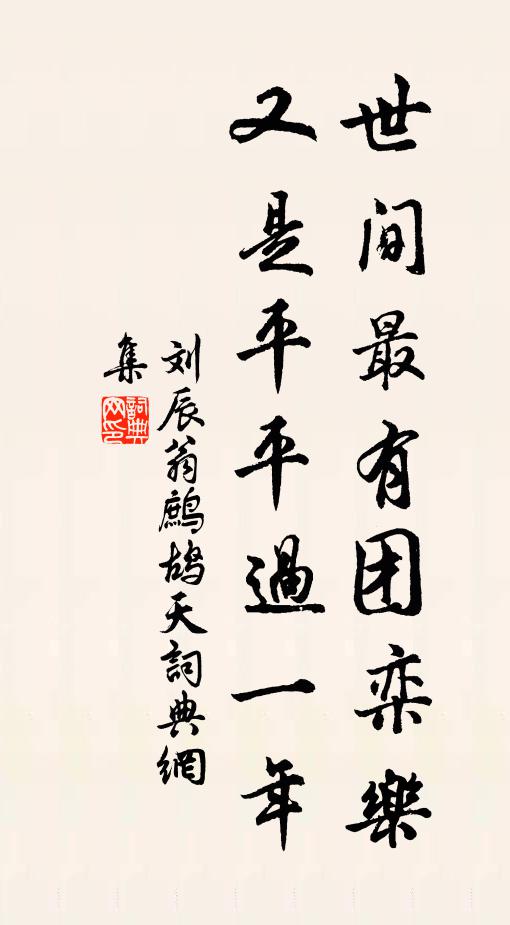 世间最有团栾樂
又是平平過一年
刘辰翁鹧鸪天詞典網
集
詞典
网印